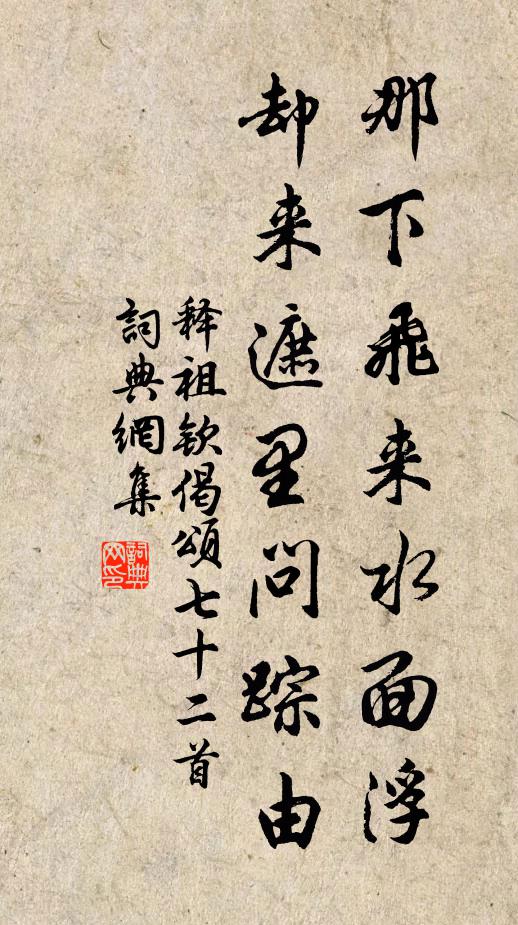 那下飛来水面浮
却来遮里问踪由
释祖钦偈颂七十二首
詞典網集
詞典网印